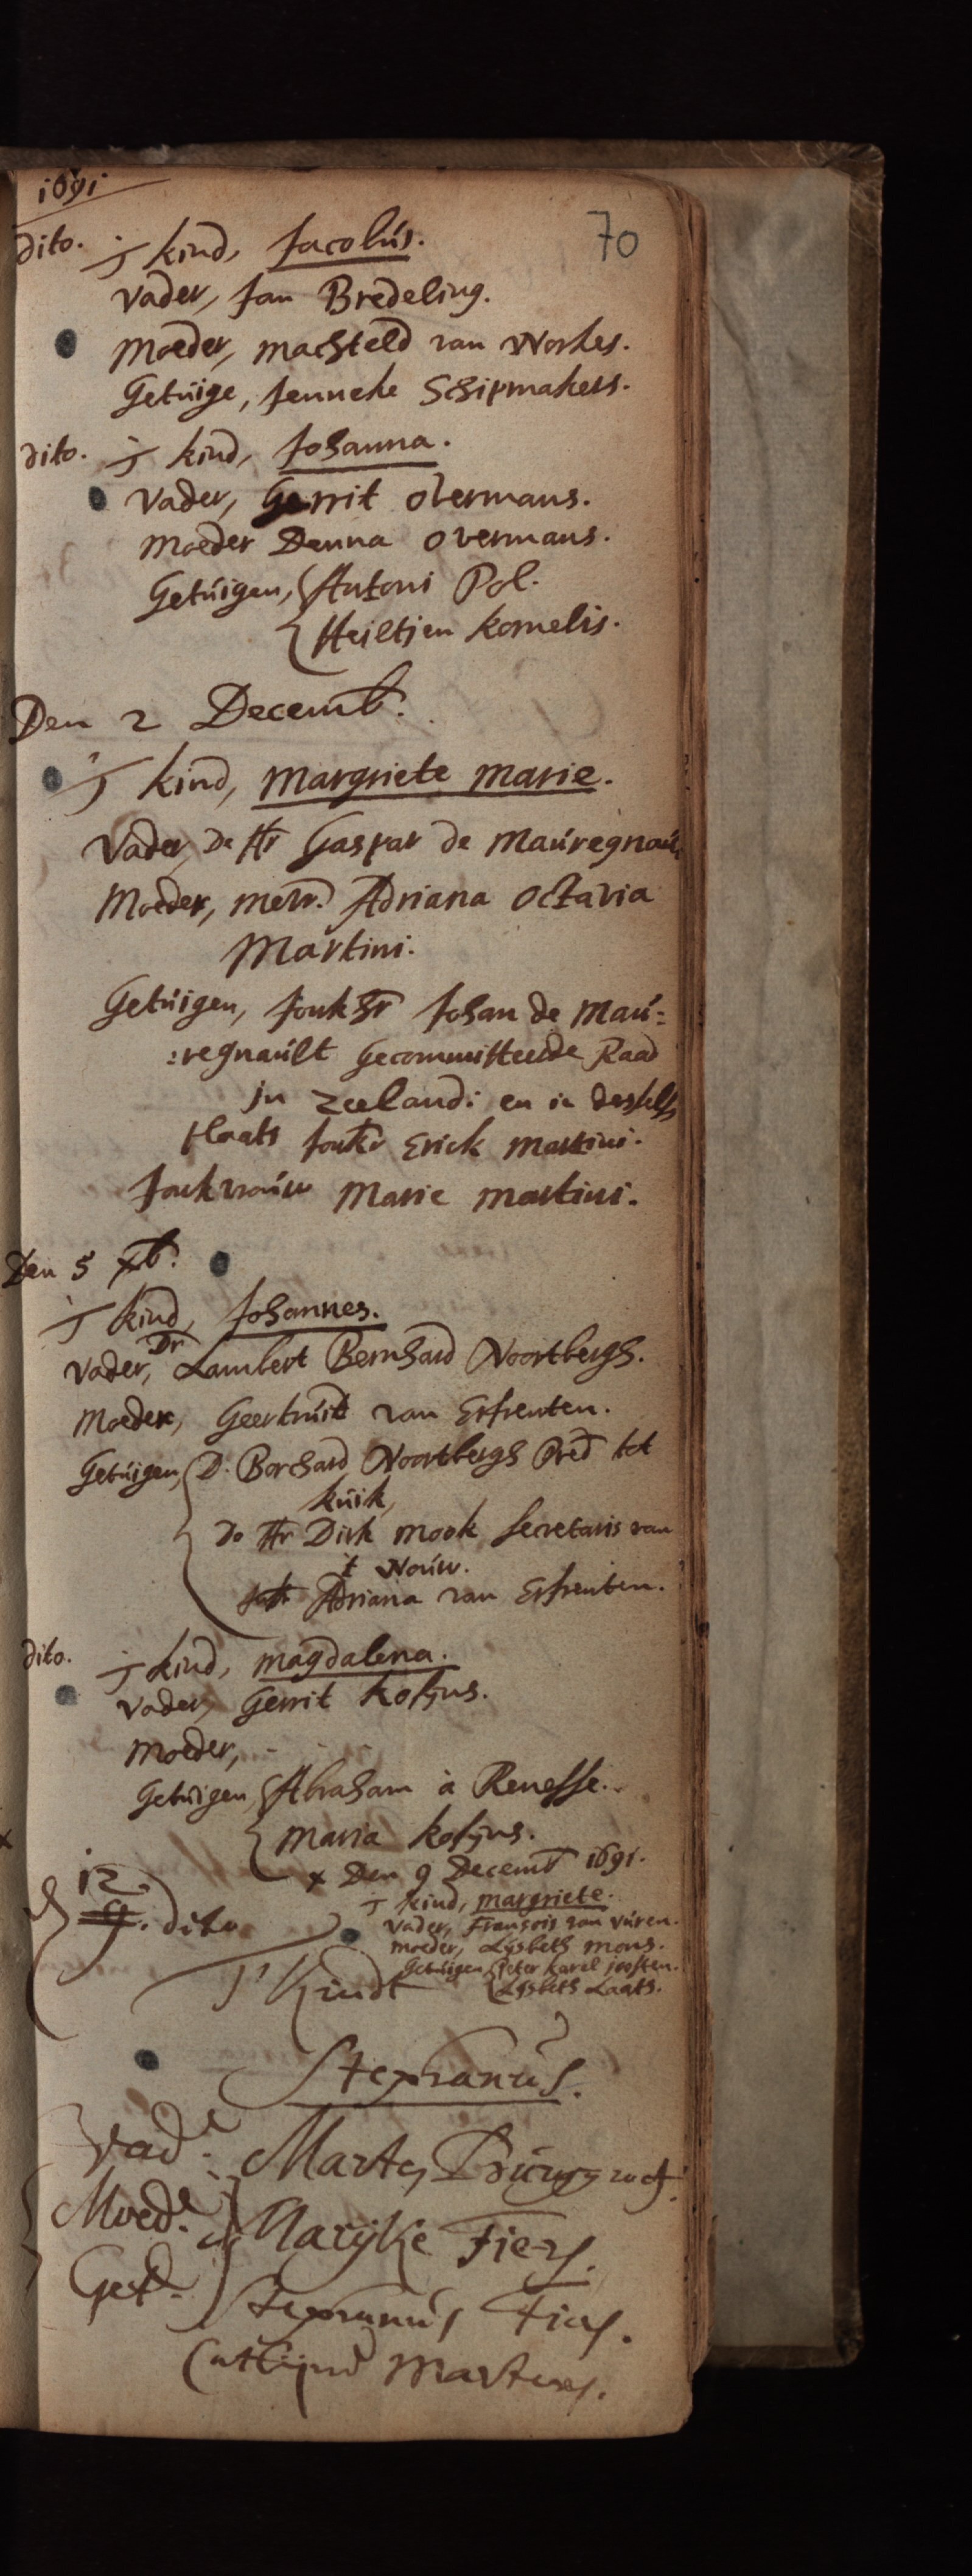 1691
70
dito. 'T kind, Jacobús.
Vader, Jan Bredeling.
Moeder, Machteld van Workes.
Getúige, Jenneke Schipmakers.
dito. 'T kind, Johanna.
Vader, Gerrit Overmans.
Moeder Denna Overmans.
Getúigen, Antoni Pol.
Heiltjen Kornelis.
Den 2 Decemb.
'T kind, Margriete Marie.
Vader, De Hr Gaspar de Maúregnaú
Moeder, Mevr. Adriana Octavia
Martini.
Getúigen, Jonkhr Johan de Maú:
:regnaúlt Gecommitteerde Raad
in Zeeland: en in desselfs
plaats Jonkr Erick Martini.
Jonkvroúw Marie Martini.
Den 5 Xb.
'T kind, Johannes.
Vader, Dr Lambert Bernhard Noortbergh.
Moeder, Geertrúit van Erfrenten.
Getúigen, D. Borchard Noortbergh Pred tot
Kúik,
De Hr Dirk Mook Secretaris van
t Noúw.
Adriana van Erfrenten.
dito. 'T kind, Magdalena.
Vader, Gerrit Kosijns.
Moeder, - - -
Getúigen, Abraham à Renesse.
Maria Kosijns.
x Den 9 Decemb 1691.
'T kind, Margriete.
Vader, François van Vúren.
Moeder, Lijsbeth Mons.
Getúigen Peter Karel Joosten.
Lijsbeth Laats.
12.
9. dito
T' Kindt
Stephanús.
Vad.
Moed. Marijke Fiers.
Get. Stephanús Fias.
Catlijnd Martens.